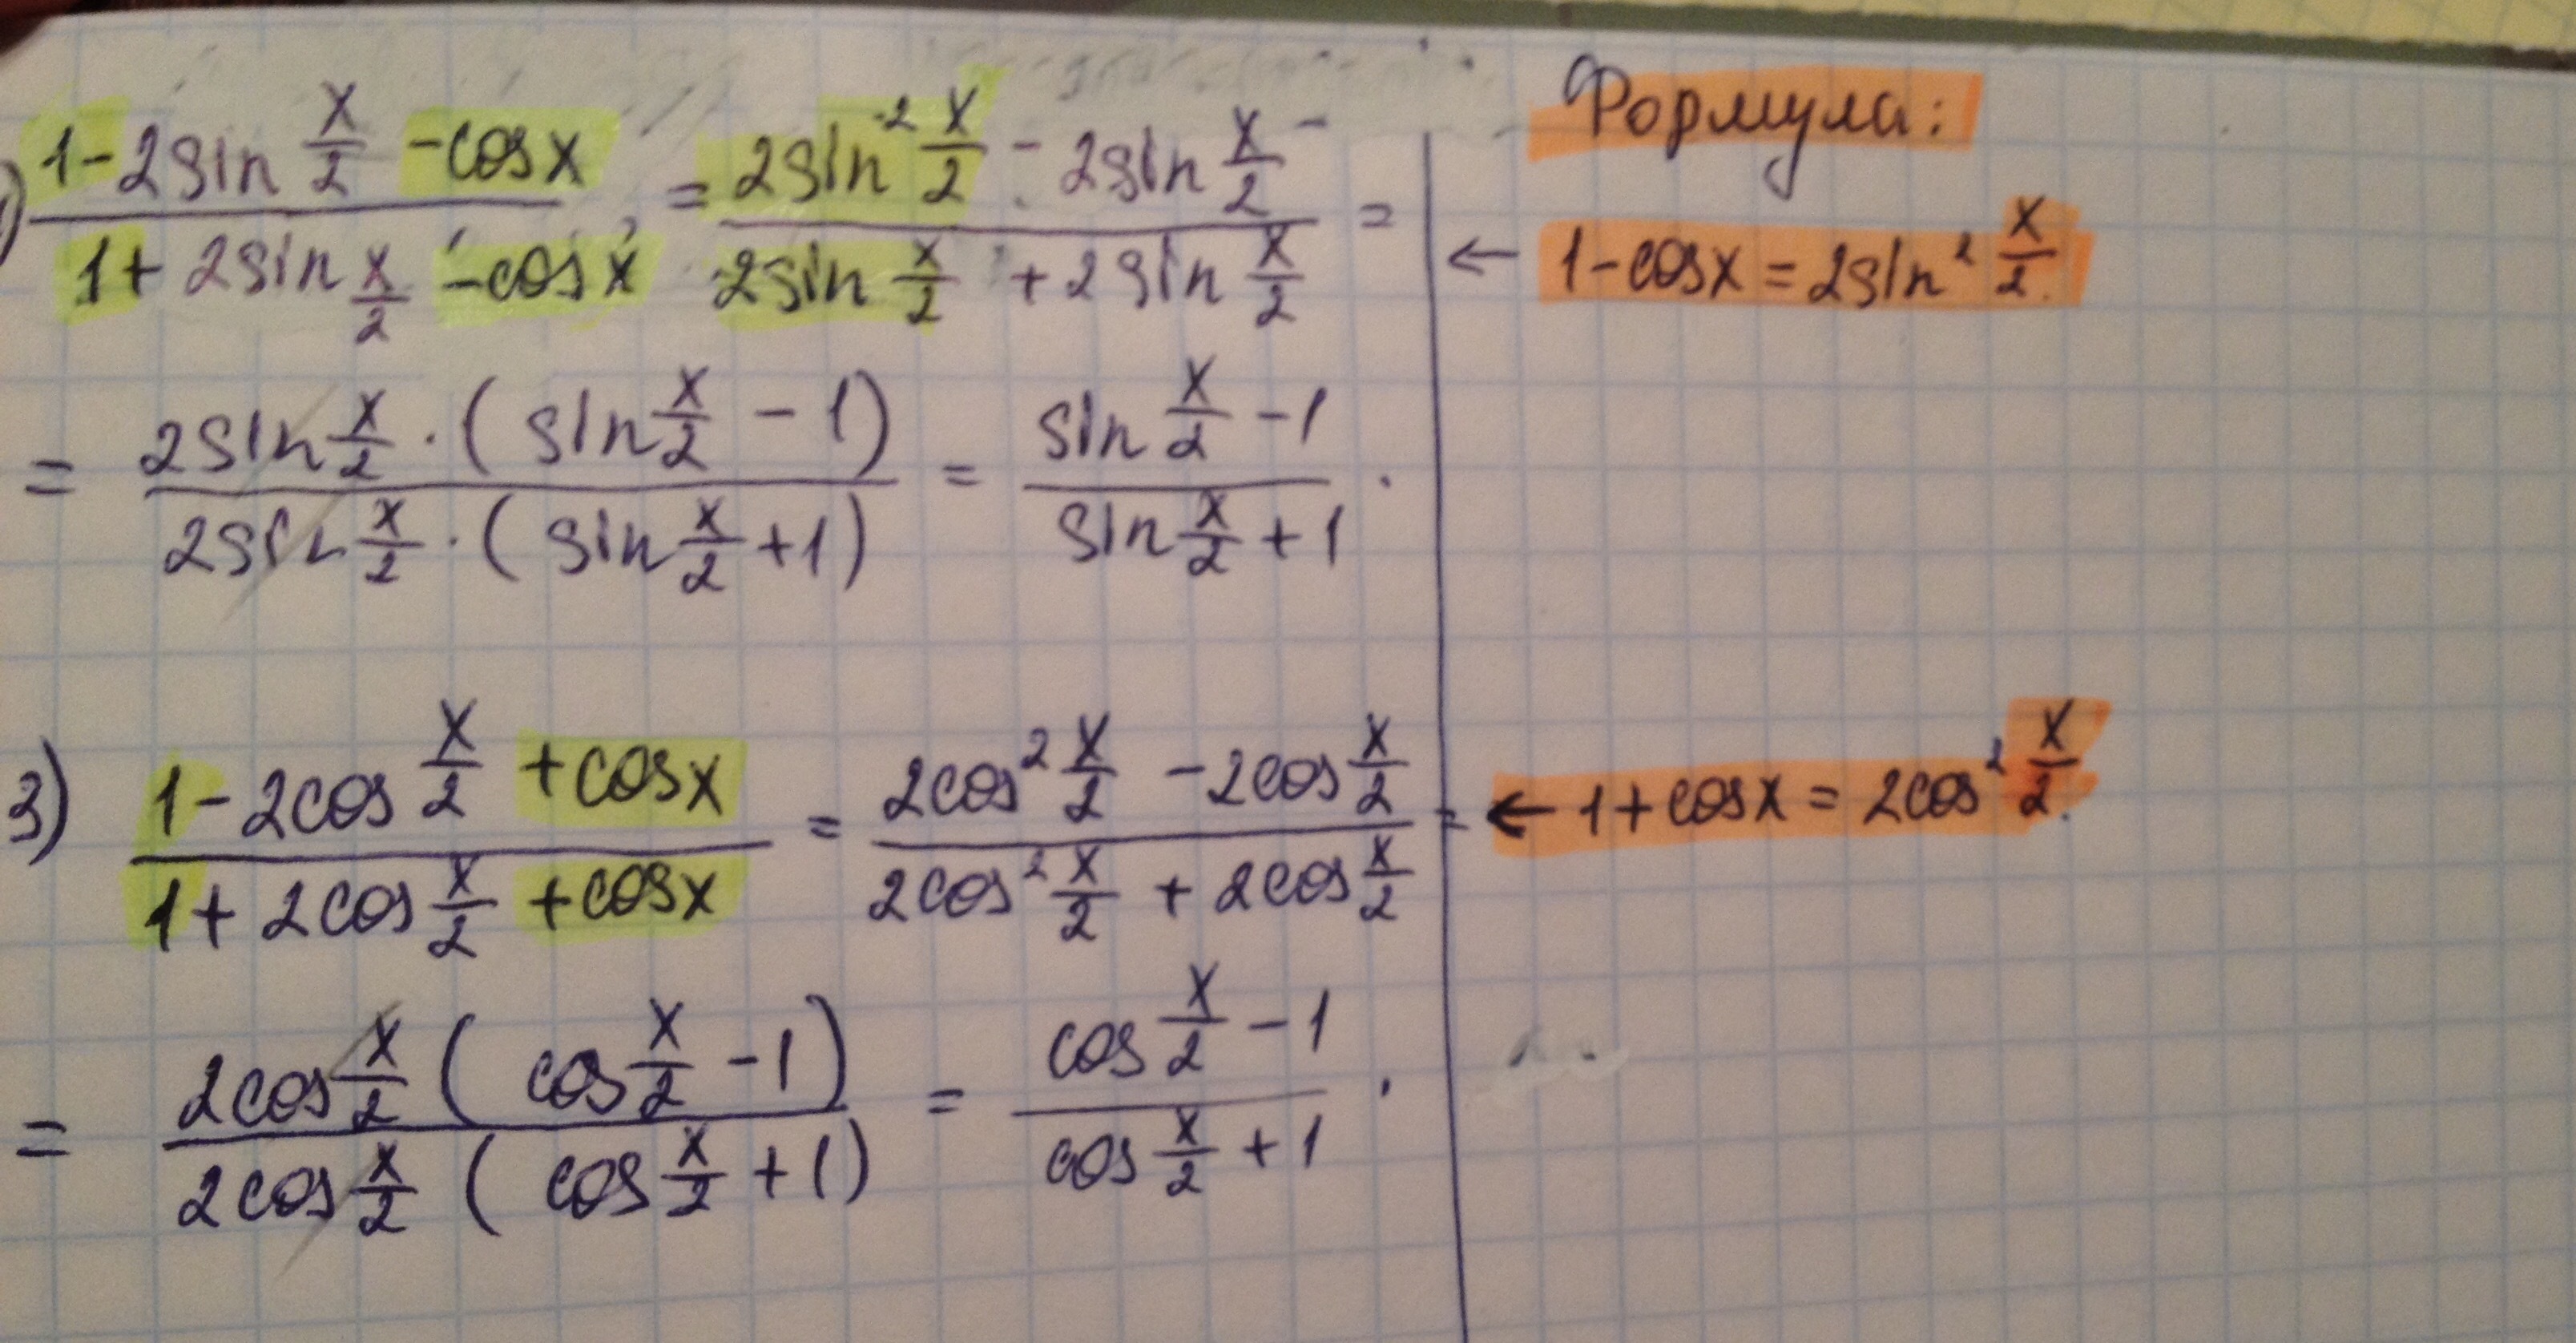 Формула:
) (1 - 2sin x/2 - cosx)/(1 + 2sin x/2 - cosx) = (2sin² x/2 - 2sin x/2)/(2sin x/2 + 2sin x/2) = ← 1 - cosx = 2sin² x/2.
= (2sin x/2 · (sin x/2 - 1))/(2sin x/2 · (sin x/2 + 1)) = (sin x/2 - 1)/(sin x/2 + 1) .
3) (1 - 2cos x/2 + cosx)/(1 + 2cos x/2 + cosx) = (2cos² x/2 - 2cos x/2)/(2cos² x/2 + 2cos x/2) = ← 1 + cosx = 2cos² x/2.
= (2cos x/2 (cos x/2 - 1))/(2cos x/2 (cos x/2 + 1)) = (cos x/2 - 1)/(cos x/2 + 1) .